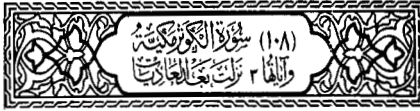 (١٠٨) سُورَةُ الكَوثَرِ مَكِّيَّة
وَآيَاتُهَا ٣ نَزَلَتْ بَعْدَ العَادِيَاتِ